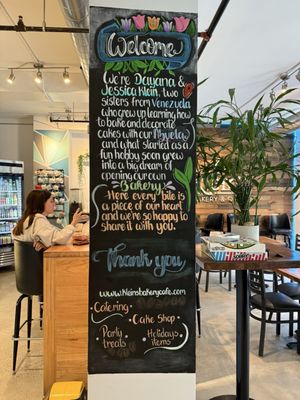 Welcome
We're Dayana &
Jessica Klein, two
sisters from Venezuela
who grew up learning how
to bake and decorate
cakes with our Abuela
and what started as a
fun hobby soon grew
into a big dream of
opening our own
Bakery
Here every bite is
a piece of our heart
and we're so happy to
share it with you.
Thank you
www.Kleinsbakerycafe.com
Catering
Cake Shop
Party
treats
Holidays
items